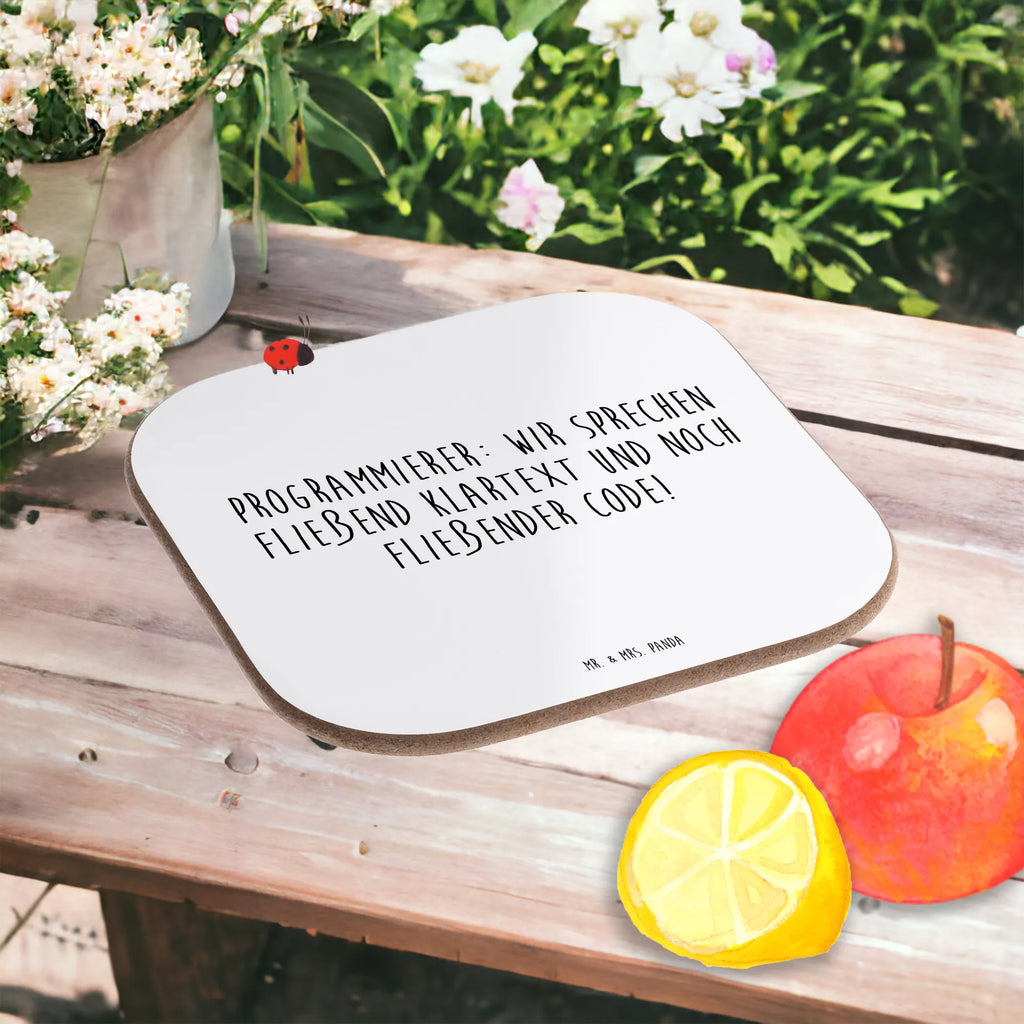 PROGRAMMIERER: WIR SPRECHEN
FLIEẞEND KLARTEXT UND NOCH
FLIEẞENDER CODE!
MR. & MRS. PANDA